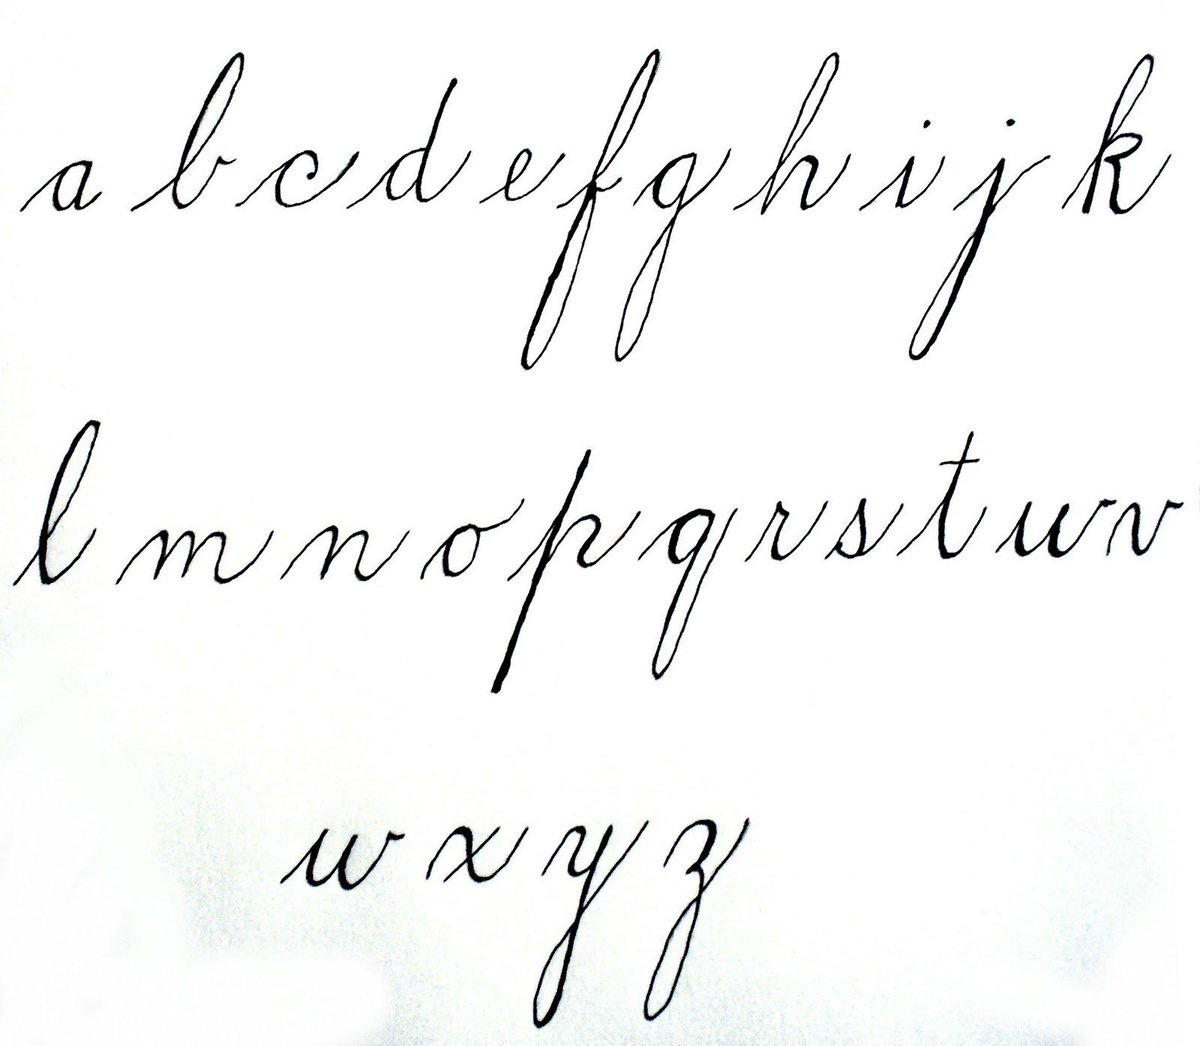 a b c d e f g h i j k
l m n o p q r s t w v
w x y z